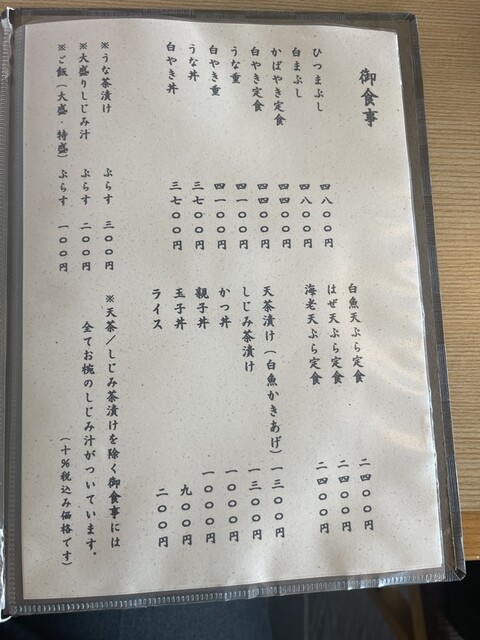 御食事
ひつまぶし 四八〇〇円
白まぶし 四八〇〇円
かばやき定食 四四〇〇円
白やき定食 四四〇〇円
うな重 四一〇〇円
白やき重 四一〇〇円
うな丼 三七〇〇円
白やき丼 三七〇〇円
※うな茶漬け ぷらす 三〇〇円
※大盛りしじみ汁 ぷらす 二〇〇円
※ご飯(大盛・特盛) ぷらす 一〇〇円
白魚天ぷら定食 二四〇〇円
はぜ天ぷら定食 二四〇〇円
海老天ぷら定食 二四〇〇円
天茶漬け(白魚かきあげ) 一三〇〇円
しじみ茶漬け 一三〇〇円
かつ丼 一〇〇〇円
親子丼 一〇〇〇円
玉子丼 九〇〇円
ライス 二〇〇円
※天茶/しじみ茶漬けを除く御食事には
全てお椀のしじみ汁がついています。
(十%税込み価格です)